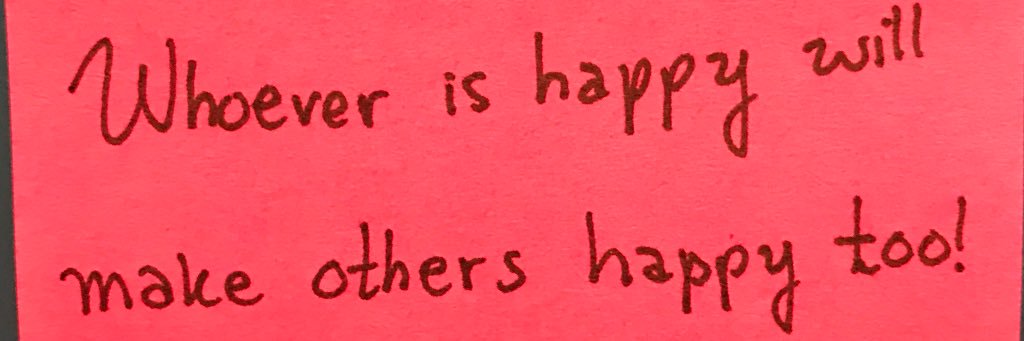 Whoever is happy will
make others happy too!